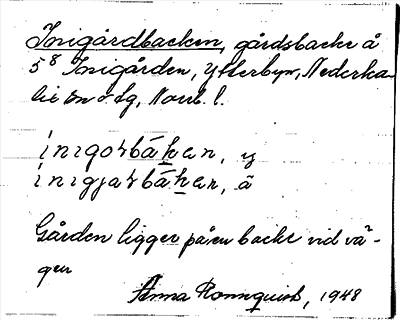 Inigårdbacken, gårdsbacke å
5⁸ Inigården, Ytterbyn, Nederka-
lix sn o. tg, Norrb. l.
inigoɾbáken, y
inigjaɾbáken, ä
Gården ligger på en backe vid vä-
gen
Anna Rönnquist, 1948